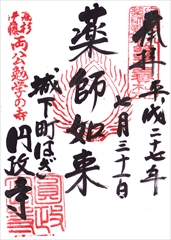 奉拝
平成二十七年
七月三十一日
薬師如来
伊藤
両公勉学の寺
城下町はぎ
円政寺